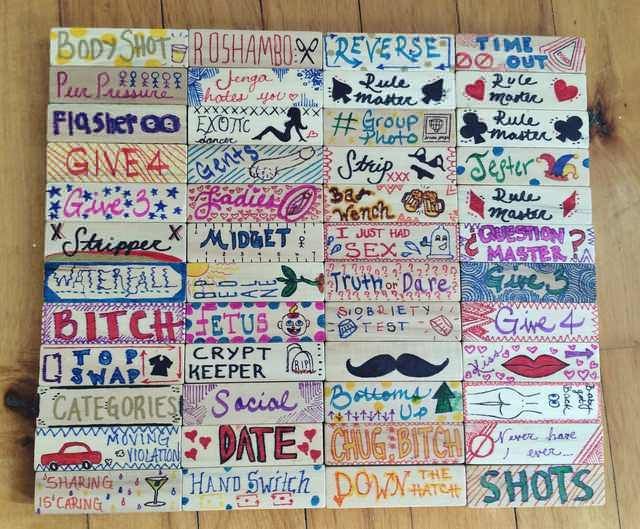 BODY SHOT
ROSHAMBO
REVERSE
TIME
OUT
Peer Pressure
Jenga
hates you
Rule
Master
Rule
Master
Flasher
EXOTIC
dancer
# Group
Photo
Rule
Master
GIVE 4
Gents
Strip
xxx
Jester
Give 3
Ladies
Bar
Wench
Rule
Master
X Stripper X
MIDGET
I JUST HAD
SEX
¿QUESTION
MASTER?
Truth or Dare
BITCH
FETUS
SOBRIETY
TEST
Give 4
TOP
SWAP
CRYPT
KEEPER
RIP
CATEGORIES
Social
Bottoms
Up
Baby
got
Back
MOVING
VIOLATION
DATE
CHUG BITCH
Never have
I ever...
SHARING
IS CARING
HAND SWITCH
DOWN THE
HATCH
SHOTS